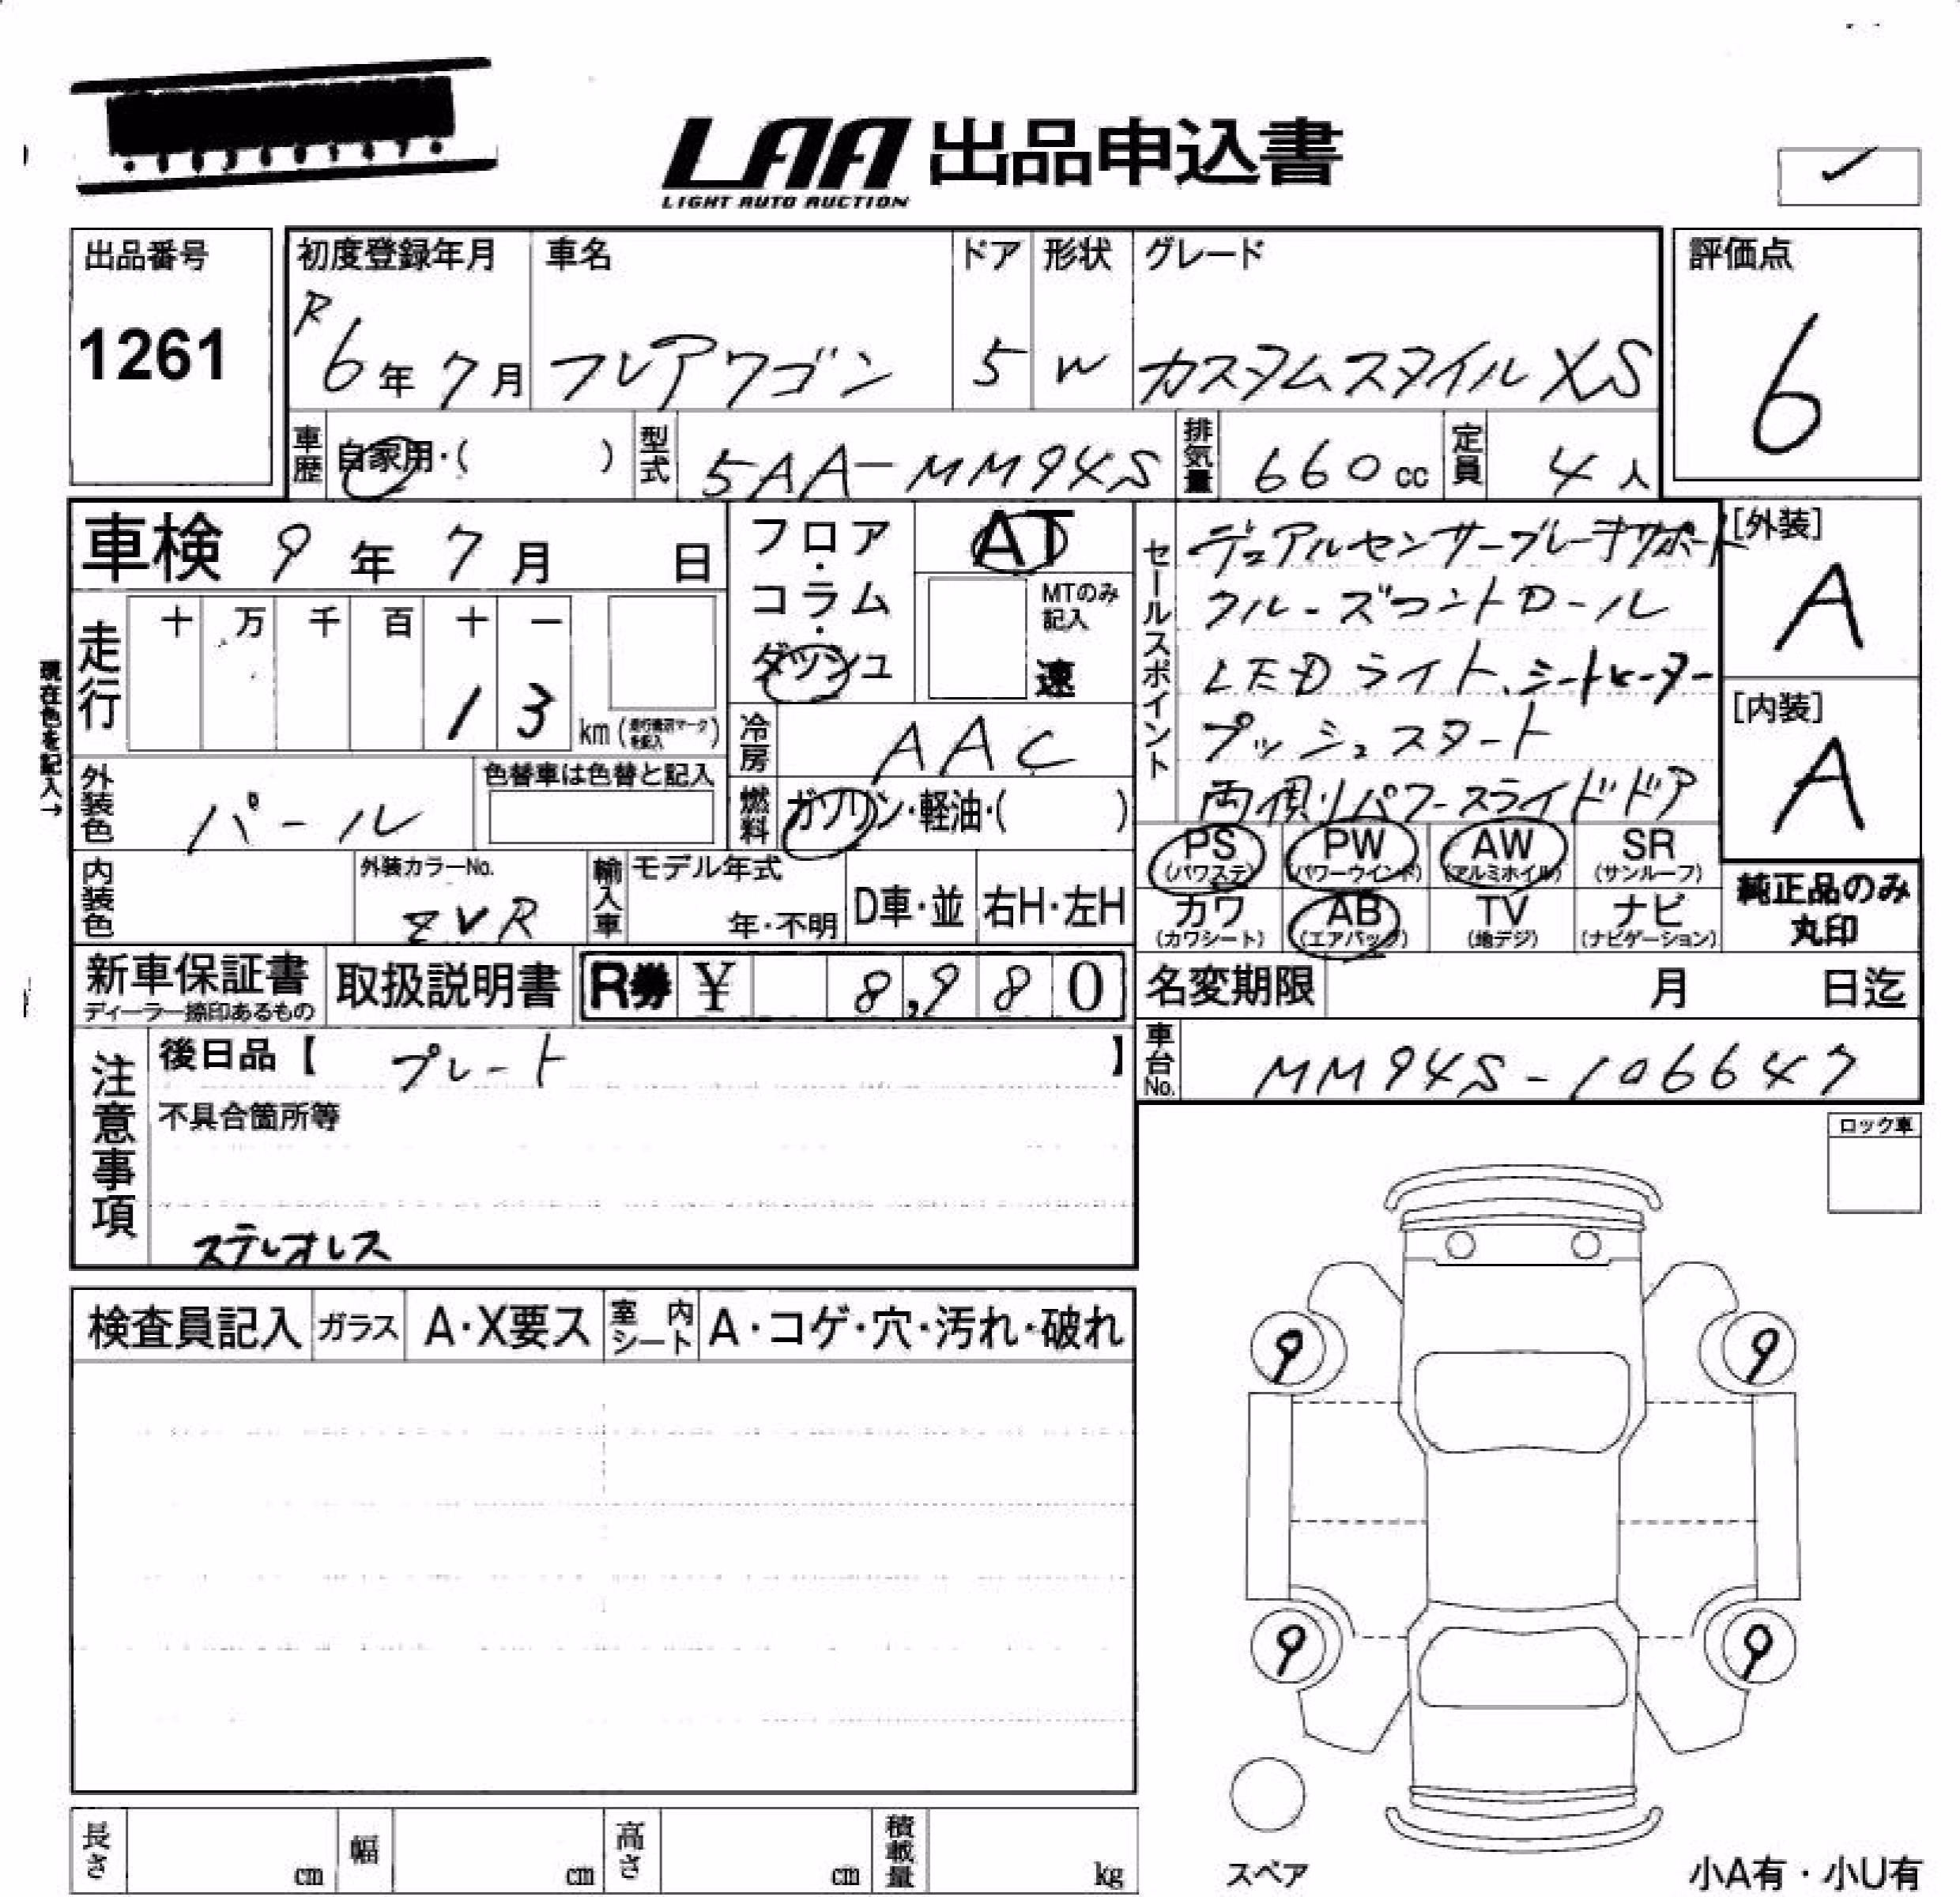 LAA 出品申込書
LIGHT AUTO AUCTION
出品番号
1261
初度登録年月
R6年7月
車名
フレアワゴン
ドア
5
形状
W
グレード
カスタムスタイルXS
評価点
6
車歴
自家用・( )
型式
5AA-MM94S
排気量
660cc
定員
4人
車検 9年7月 日
フロア・コラム・ダッシュ
AT
MTのみ記入
速
セールスポイント
デュアルセンサーブレーキサポート
クルーズコントロール
LEDライト、シートヒーター
プッシュスタート
両側パワースライドドア
[外装]
A
[内装]
A
走行
十 万 千 百 十 一
13
km(
現在色を記入→
冷房
AAC
外装色
パール
色替車は色替と記入
燃料
ガソリン・軽油・( )
内装色
外装カラーNo.
ZVR
輸入車
モデル年式
年・不明
D車・並
右H・左H
PS
(パワステ)
PW
(パワーウインド)
AW
(アルミホイル)
SR
(サンルーフ)
カワ
(カワシート)
AB
(エアバッグ)
TV
(地デジ)
ナビ
(ナビゲーション)
純正品のみ
丸印
新車保証書
ディーラー捺印あるもの
取扱説明書
R券 ¥ 8,980
名変期限 月 日迄
車台No.
MM94S-106647
注意事項
後日品【 プレート 】
不具合箇所等
ステレオレス
ロック車
検査員記入
ガラス
A・X要ス
室内シート
A・コゲ・穴・汚れ・破れ
9
9
9
9
スペア
小A有・小U有
長さ cm
幅 cm
高さ cm
積載量 kg